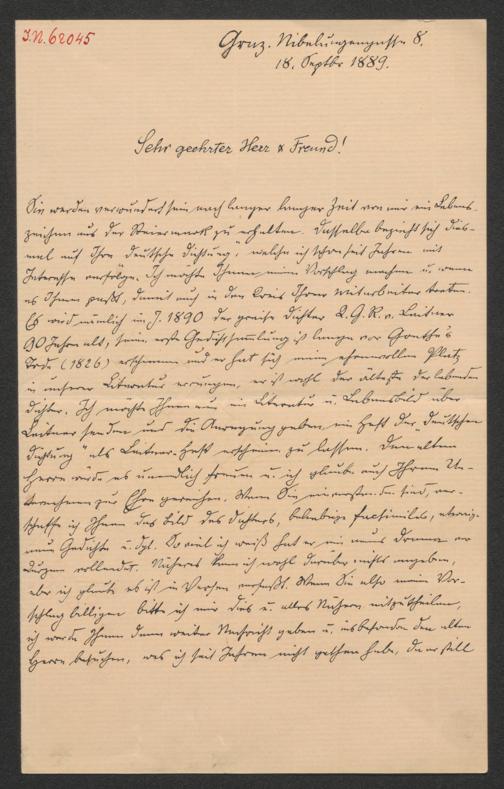 J.N. 62045
Graz. Nibelungengasse 8.
18. Septbr 1889.
Sehr geehrter Herr & Freund!
Sie werden verwundert sein nach langer langer Zeit von mir ein Lebens-
zeichen aus der Steiermark zu erhalten. Dasselbe bezieht sich dies-
mal auf Ihre „deutsche Dichtung", welche ich schon seit Jahren mit
Interesse verfolge. Ich möchte Ihnen einen Vorschlag machen u. wenn
es Ihnen paßt, damit auch in den Kreis Ihrer Mitarbeiter treten.
Es wird nämlich im J. 1890 der greise Dichter K. G. R. v. Leitner
90 Jahre alt, seine erste Gedichtsammlung ist lange vor Goethe's
Tode (1826) erschienen und er hat sich einen ehrenvollen Platz
in unserer Literatur errungen, er ist wohl der älteste der lebenden
Dichter. Ich möchte Ihnen nun ein Literatur u. Lebensbild über
Leitner senden und die Anregung geben ein Heft der „deutschen
Dichtung" als Leitner-Heft erscheinen zu lassen. Dem alten
Herrn würde es unendlich freuen u. ich glaube auch Ihrem Un-
ternehmen zur Ehre gereichen. Wenn Sie einverstanden sind, ver-
schaffe ich Ihnen das Bild des Dichters, beliebige Facsimiles, etwaige
neue Gedichte u. dgl. So viel ich weiß hat er ein neues Drama vor
Kurzem vollendet. Näheres kann ich wohl darüber nichts angeben,
aber ich glaube es ist in Versen verfaßt. Wenn Sie also meinen Vor-
schlag billigen bitte ich mir dies u. alles Nähere mitzutheilen,
ich werde Ihnen dann weiter Nachricht geben u. insbesondere den alten
Herrn besuchen, was ich seit Jahren nicht gethan habe, da er still